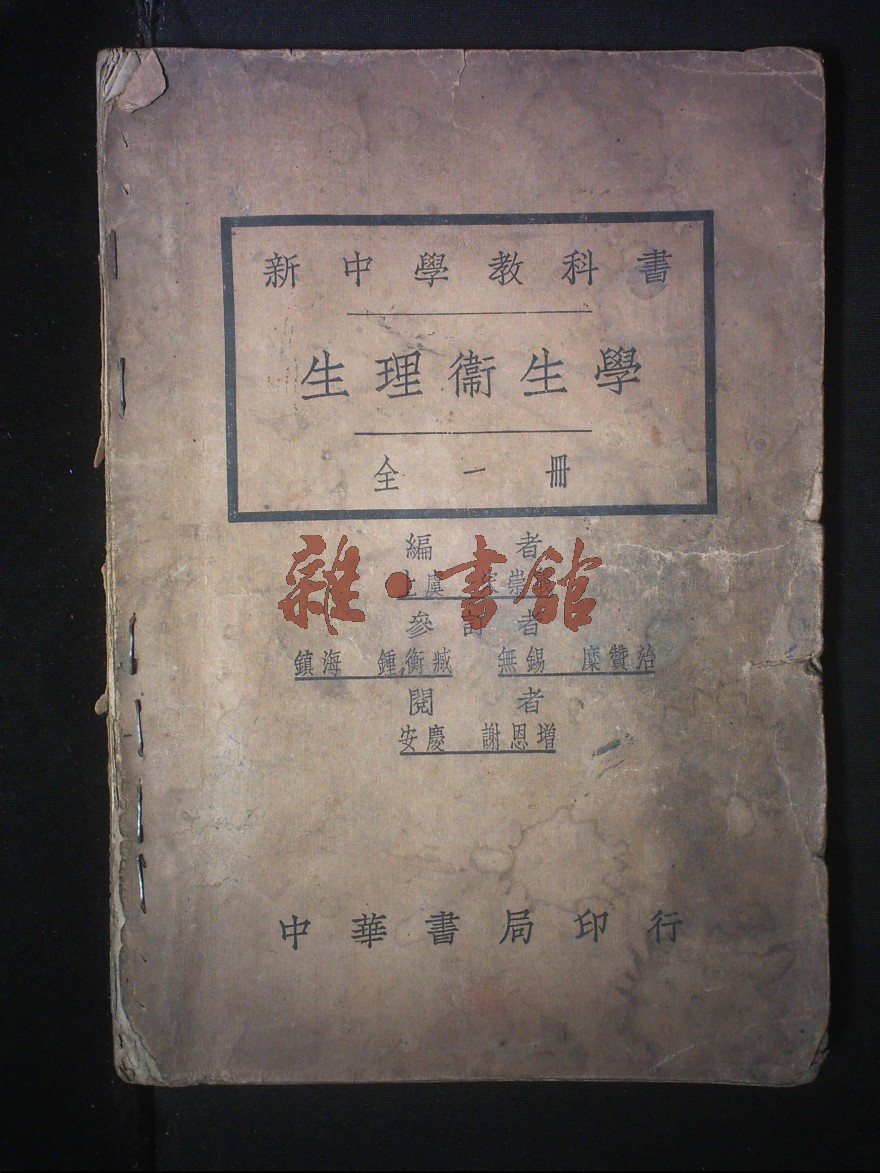 新中學教科書
生理衞生學
全一冊
編者
上虞 宋崇義
參訂者
鎮海 鍾衡臧 無錫 糜贊治
閱者
安慶 謝恩增
中華書局印行
雜·書館